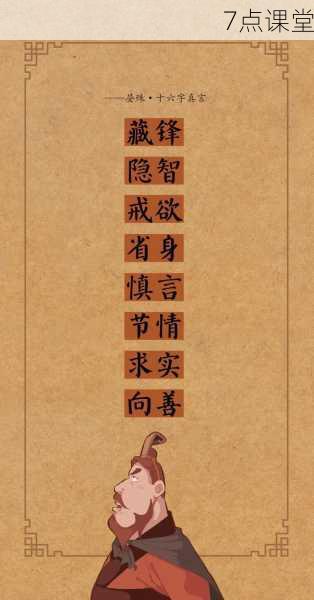 7点课堂
——晏殊·十六字真言
藏锋
隐智
戒欲
省身
慎言
节情
求实
向善